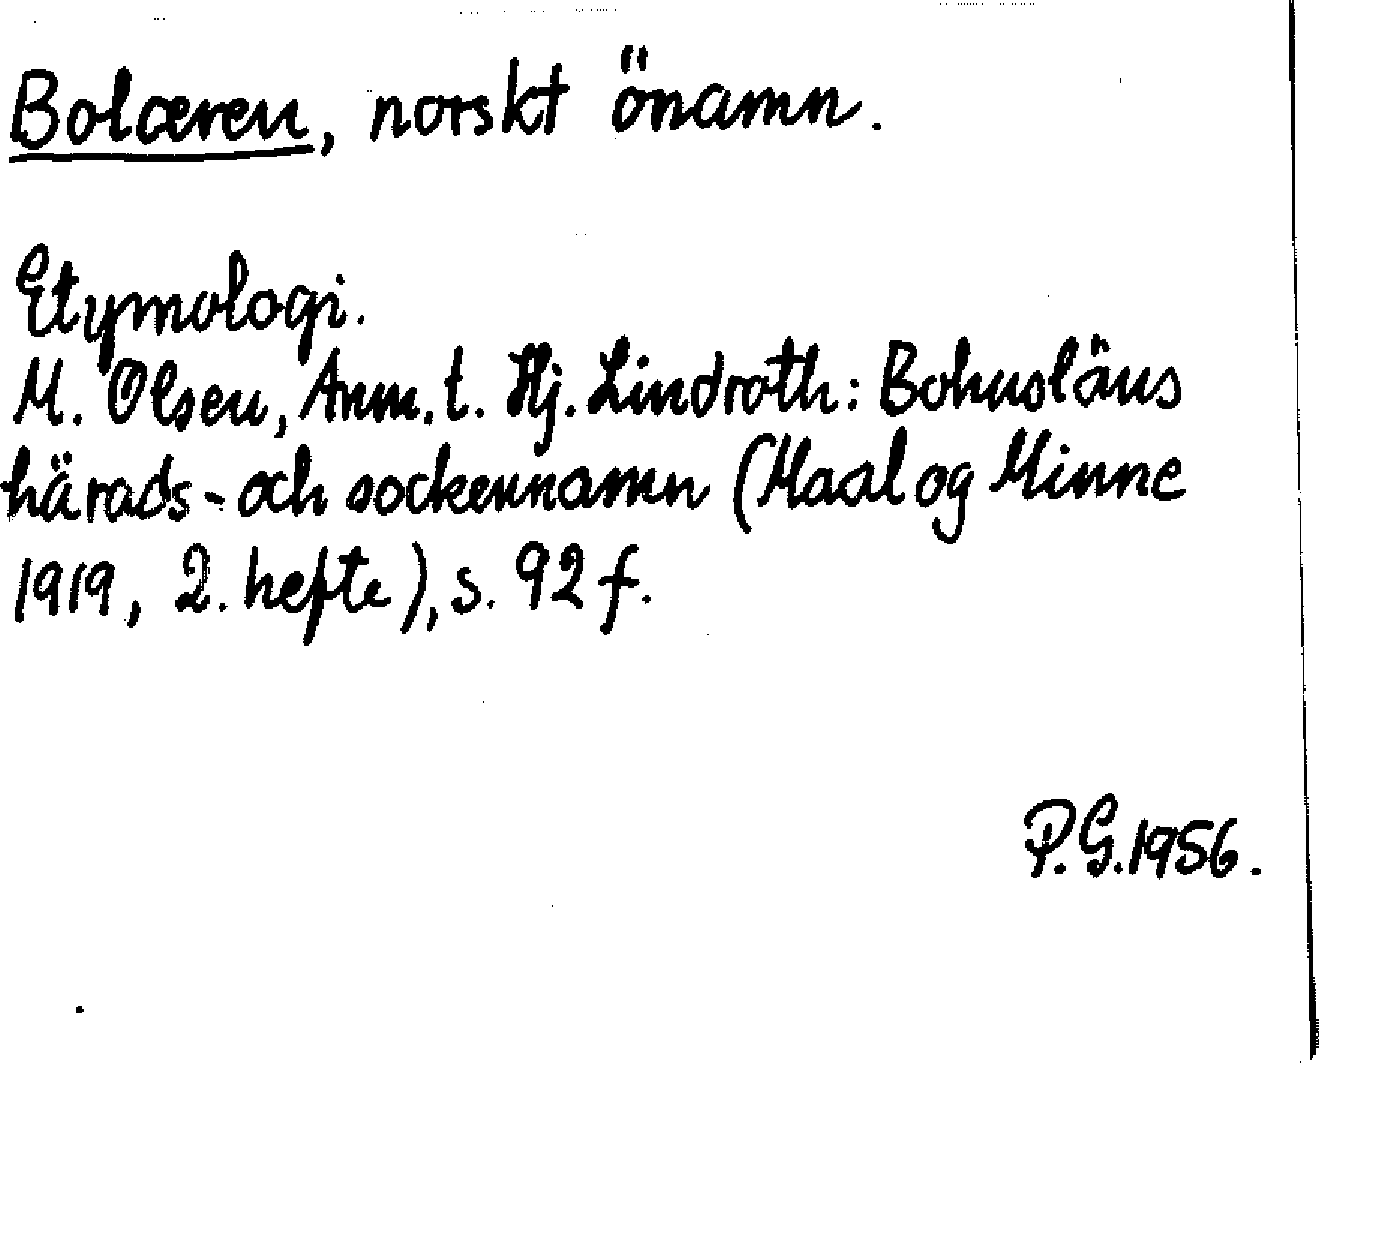 Bolæren, norskt önamn.
Etymologi.
M. Olsen, Anm. t. Hj. Lindroth: Bohusläns
härads- och sockennamn (Maal og Minne
1919, 2. hefte), s. 92 f.
P. G. 1956.